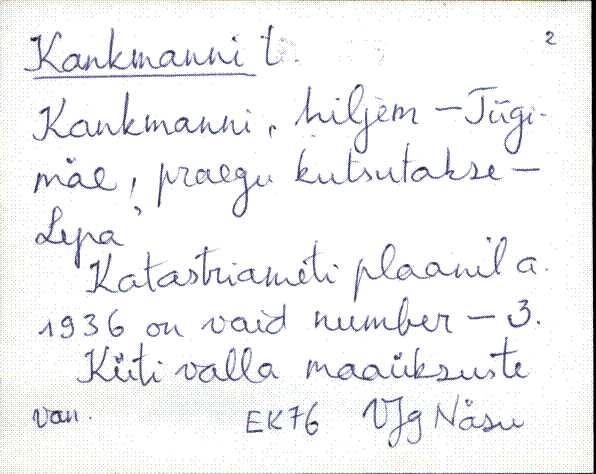 2
Kankmanni t.
Kankmanni, hiljem – Tügi-
mäe, praegu kutsutakse –
Lepa
Katastriameti plaanil a.
1936 on vaid number – 3.
Küti valla maaüksuste
van. EK76 VJg Näsu